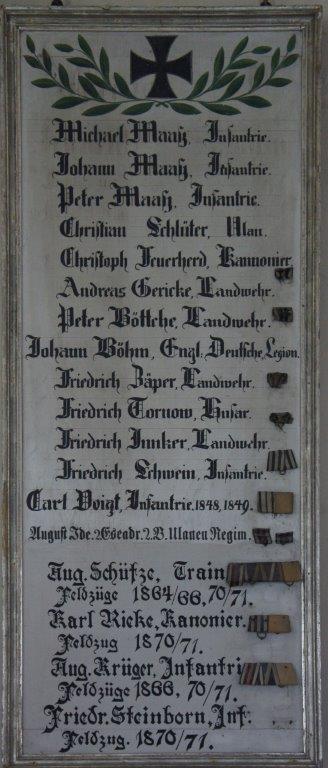 Michael Maaß, Infantrie.
Johann Maaß, Infantrie.
Peter Maaß, Infantrie.
Christian Schlüter, Ulan.
Christoph Feuerherd, Kannonier.
Andreas Gericke, Landwehr.
Peter Böttche, Landwehr.
Johann Böhm, Engl. Deutsche Legion.
Friedrich Bäper, Landwehr.
Friedrich Tornow, Husar.
Friedrich Junker, Landwehr.
Friedrich Schwein, Infantrie.
Carl Voigt, Infantrie. 1848, 1849.
August Ide. 2. Escadr. 2. B. Ulanen Regim.
Aug. Schütze, Train
Feldzüge 1864/66, 70/71.
Karl Ricke, Kanonier.
Feldzug 1870/71.
Aug. Krüger, Infantri
Feldzüge 1866, 70/71.
Friedr. Steinborn, Inf.
Feldzug. 1870/71.